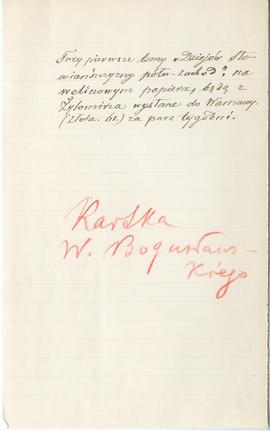 Trzy pierwsze tomy „Dziejów Sło-
wiańszczyzny półn-zachod”, na
welinowym papierze, będą z
Żytomirza wysłane do Warszawy.
(Złota. 61.) za parę tygodni.
Kartka
W. Bogusław-
skiego